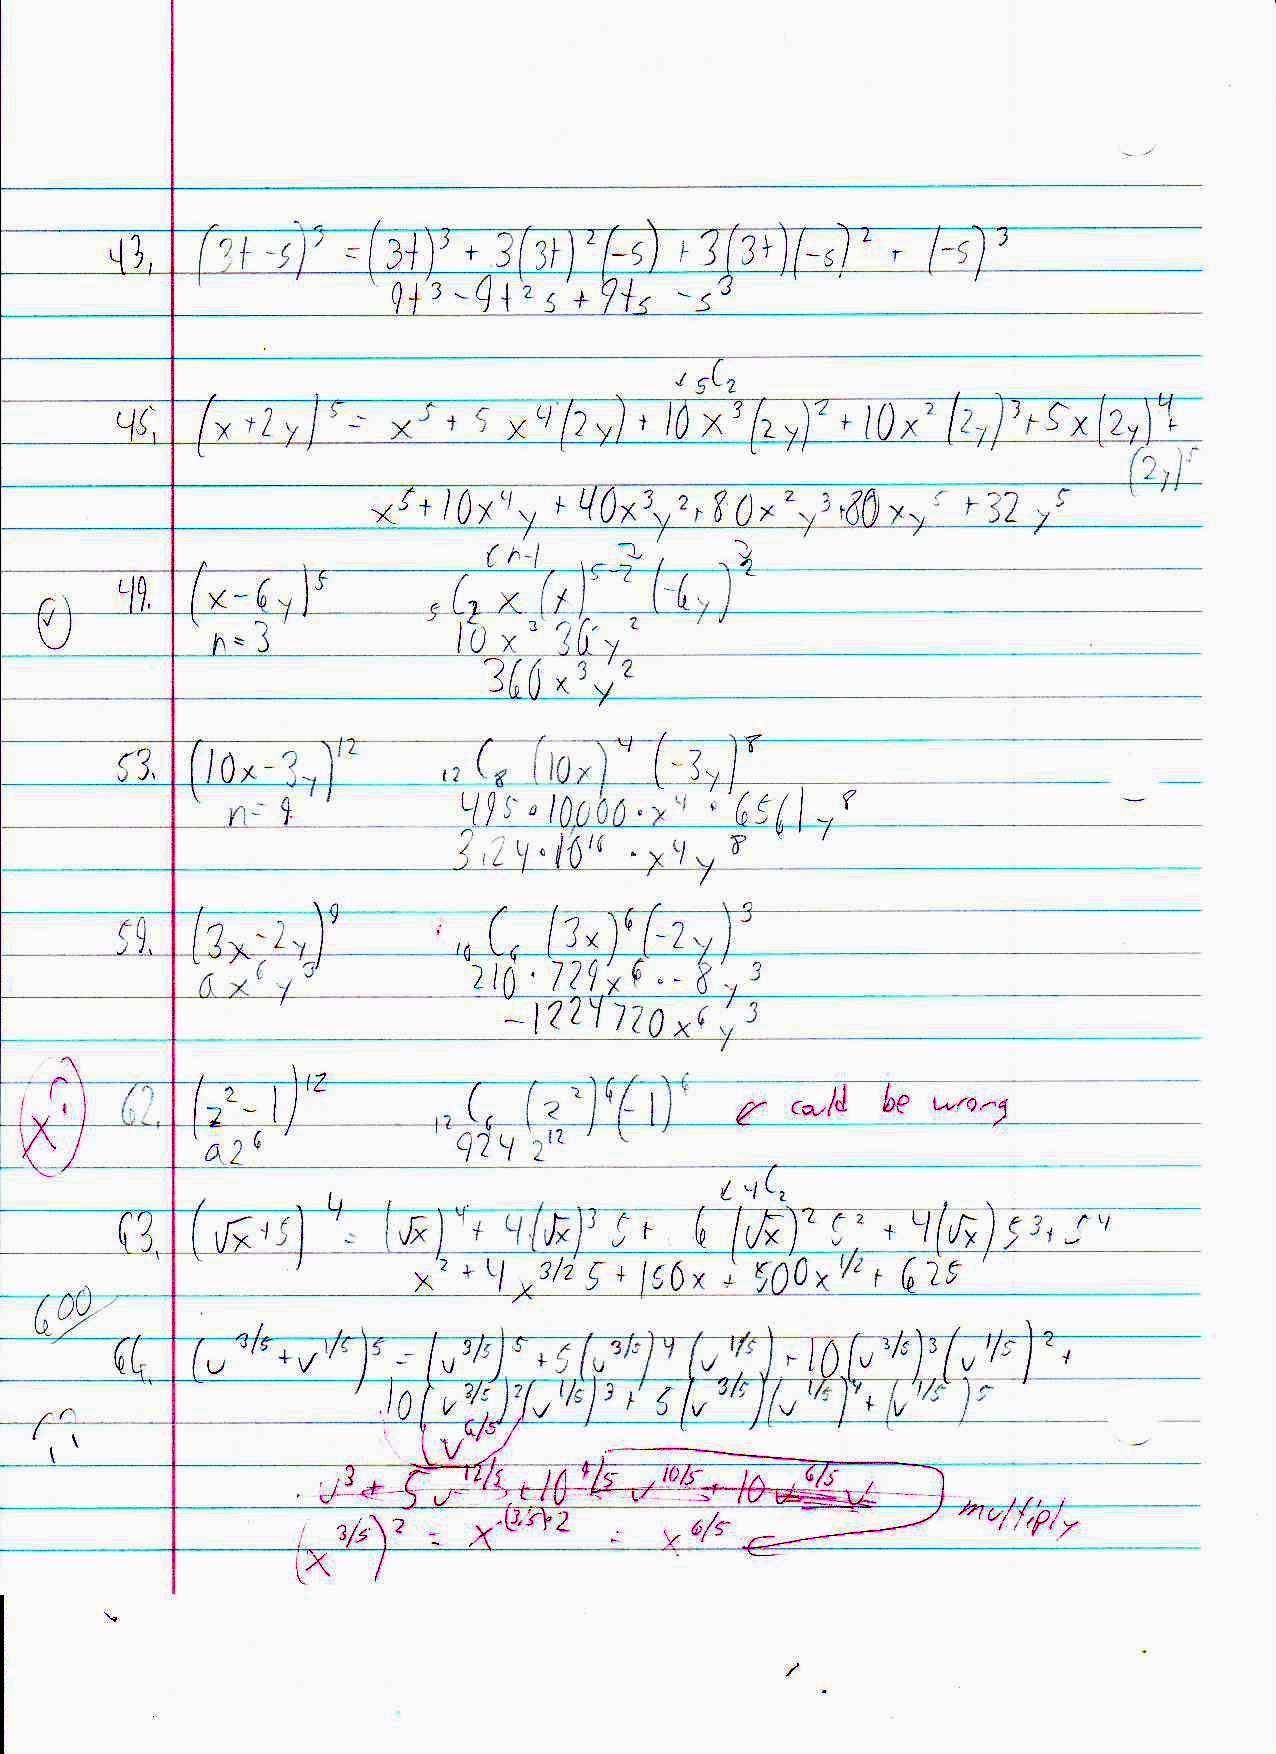 43. (3t - s)³ = (3t)³ + 3(3t)²(-s) + 3(3t)(-s)² + (-s)³
9t³ - 9t²s + 9ts - s³
↙ ₅C₂
45. (x + 2y)⁵ = x⁵ + 5x⁴(2y) + 10x³(2y)² + 10x²(2y)³ + 5x(2y)⁴ +
(2y)⁵
x⁵ + 10x⁴y + 40x³y² + 80x²y³ + 80xy⁵ + 32y⁵
n-1
49. (x - 6y)⁵ ₅C₂ x (x)⁵⁻² (-6y)²
n = 3 10x³ 36y²
360x³y²
53. (10x - 3y)¹² ₁₂C₈ (10x)⁴ (-3y)⁸
n = 9 495 · 10000 · x⁴ · 6561y⁸
3.24 · 10¹⁰ · x⁴y⁸
59. (3x - 2y)⁹ ₁₀C₆ (3x)⁶(-2y)³
ax⁶y³ 210 · 729x⁶ · -8y³
-1224720x⁶y³
x? 62. (z² - 1)¹² ₁₂C₆ (z²)⁶(-1)⁶ ← could be wrong
az⁶ 924z¹²
↙ ₄C₂
63. (√x + 5)⁴ = (√x)⁴ + 4(√x)³5 + 6(√x)²5² + 4(√x)5³ + 5⁴
x² + 4x³ᐟ²5 + 150x + 500x¹ᐟ² + 625
600
64. (v³ᐟ⁵ + v¹ᐟ⁵)⁵ = (v³ᐟ⁵)⁵ + 5(v³ᐟ⁵)⁴(v¹ᐟ⁵) + 10(v³ᐟ⁵)³(v¹ᐟ⁵)² +
10(v³ᐟ⁵)²(v¹ᐟ⁵)³ + 5(v³ᐟ⁵)(v¹ᐟ⁵)⁴ + (v¹ᐟ⁵)⁵
v⁶ᐟ⁵
v³ + 5v¹²ᐟ⁵ + 10 v¹⁰ᐟ⁵ + 10v⁶ᐟ⁵ v multiply
(x³ᐟ⁵)² = x⁽³ᐟ⁵⁾·² = x⁶ᐟ⁵